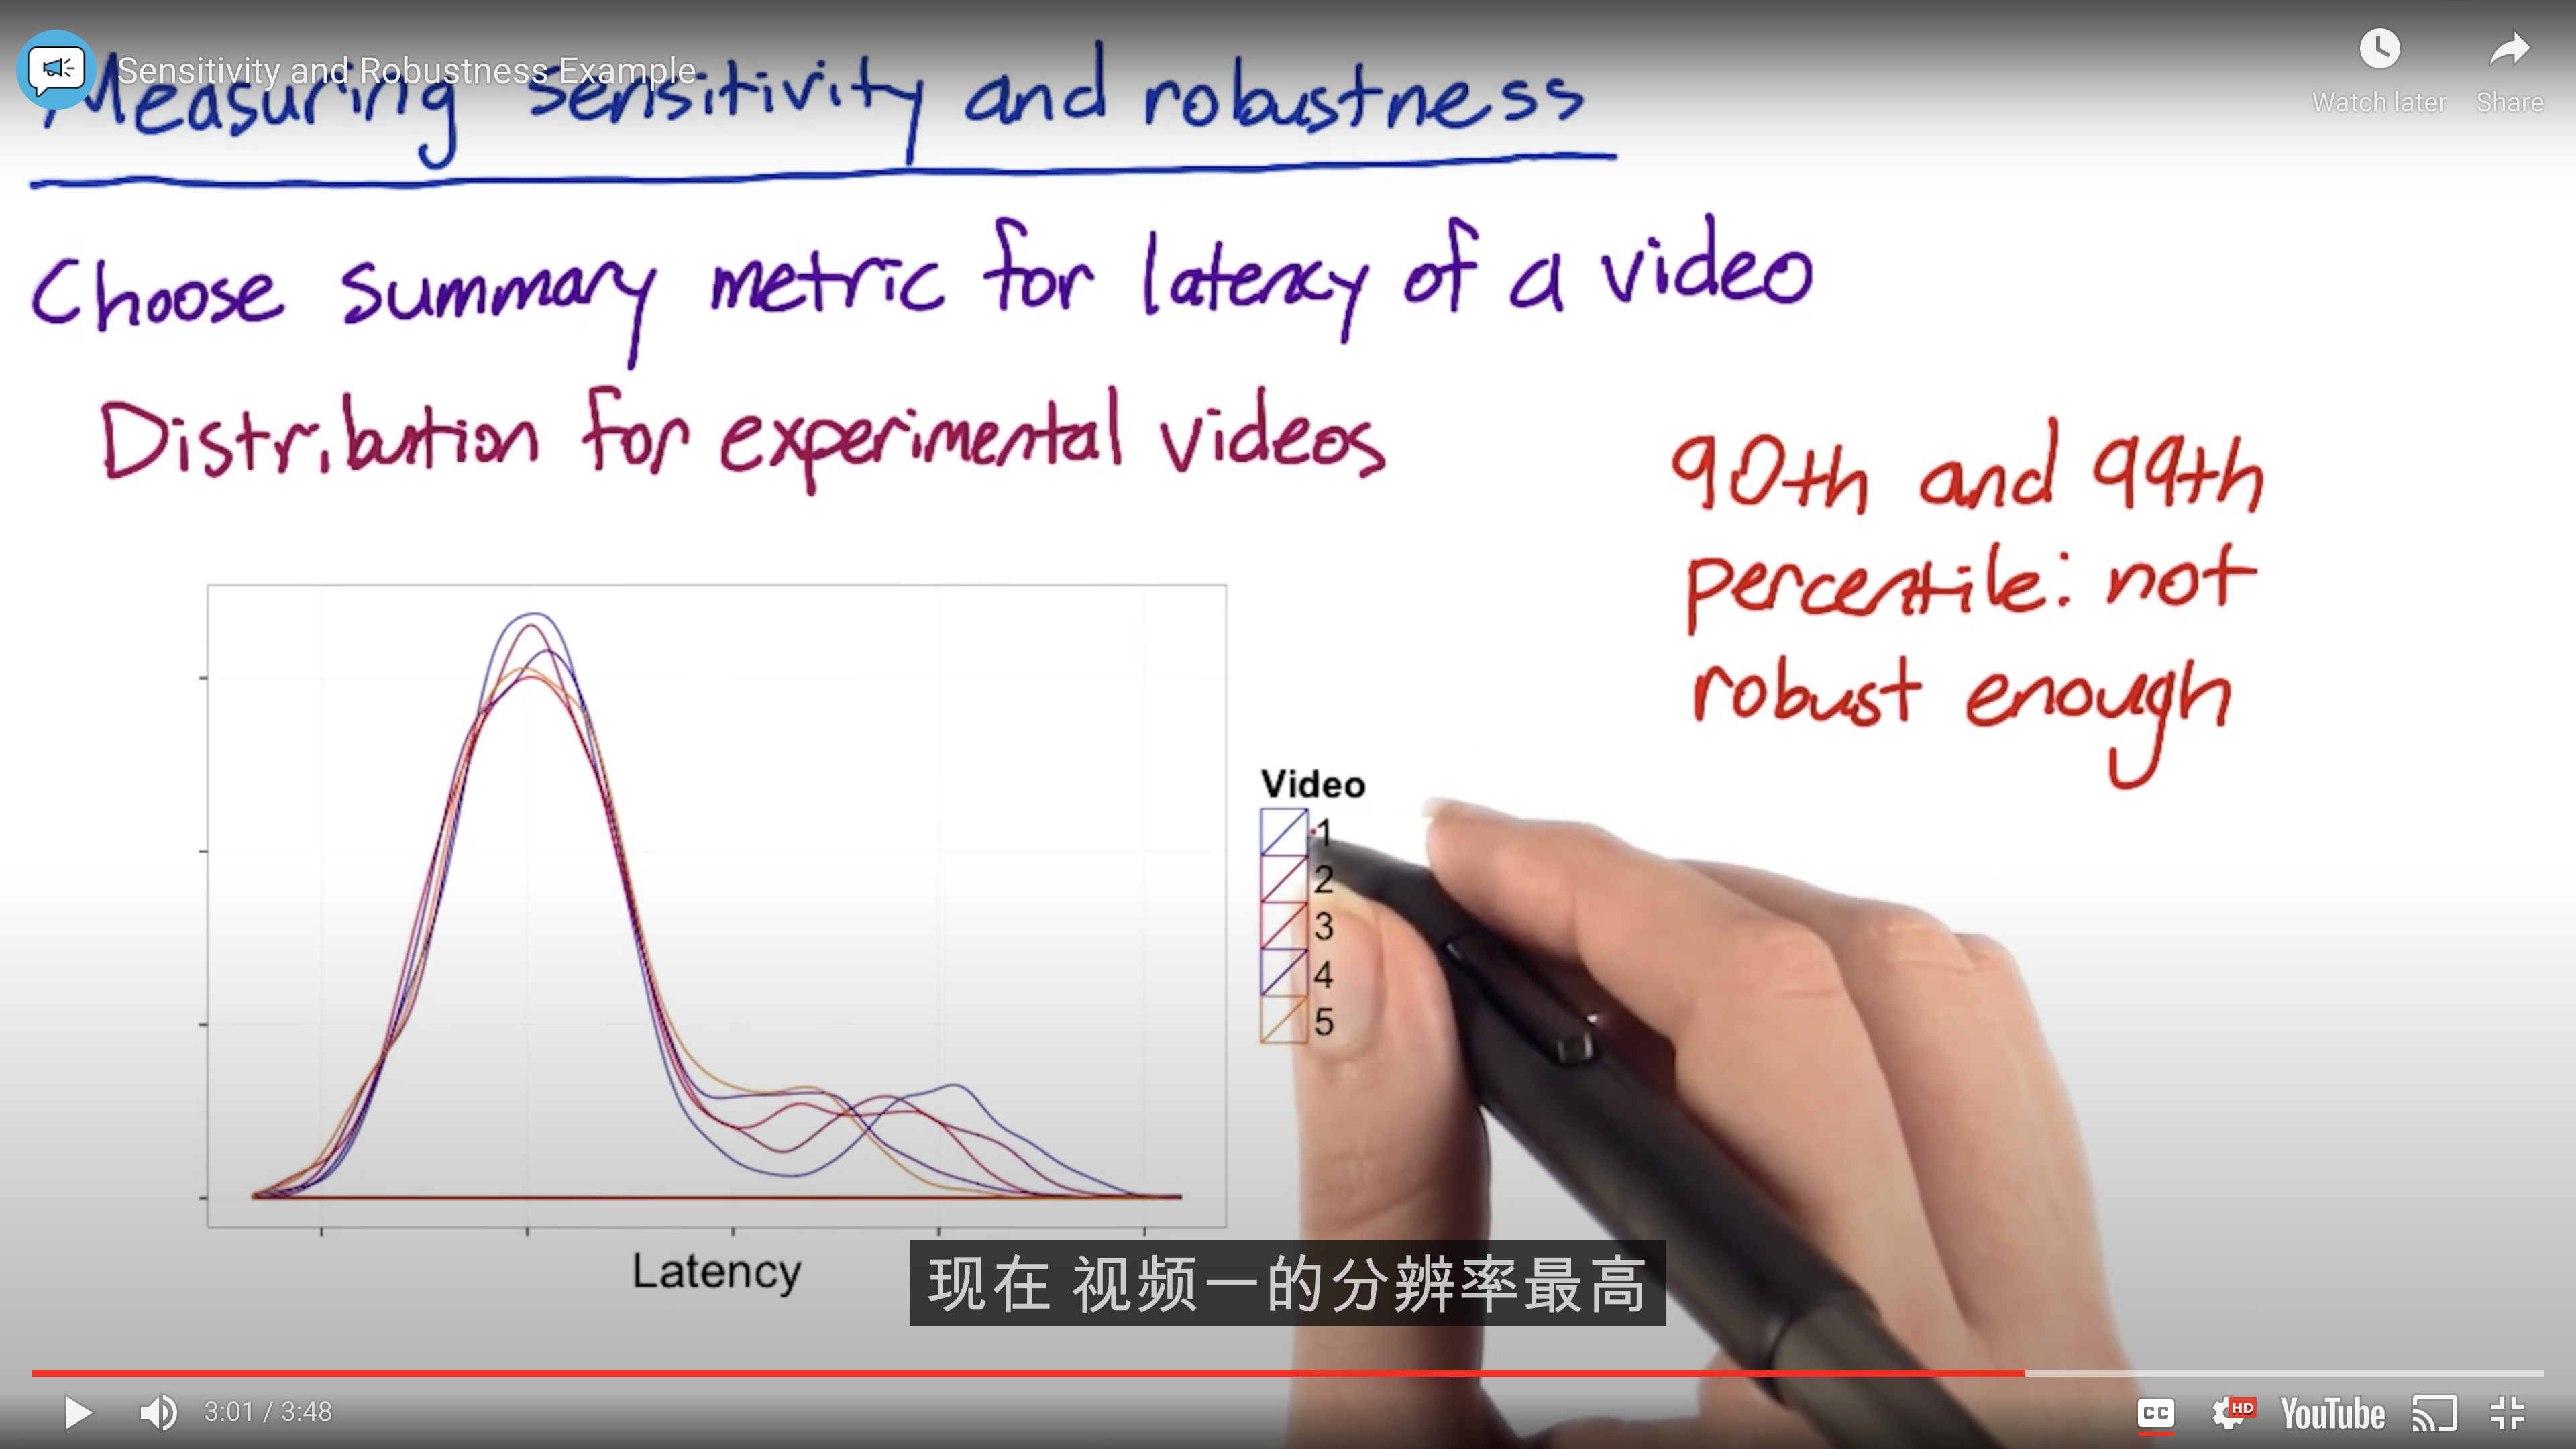 Sensitivity and Robustness Example
Watch later
Share
Measuring sensitivity and robustness
Choose summary metric for latency of a video
Distribution for experimental videos
90th and 99th
percentile: not
robust enough
Video
1
2
3
4
5
Latency
现在 视频一的分辨率最高
3:01 / 3:48
CC
HD
YouTube